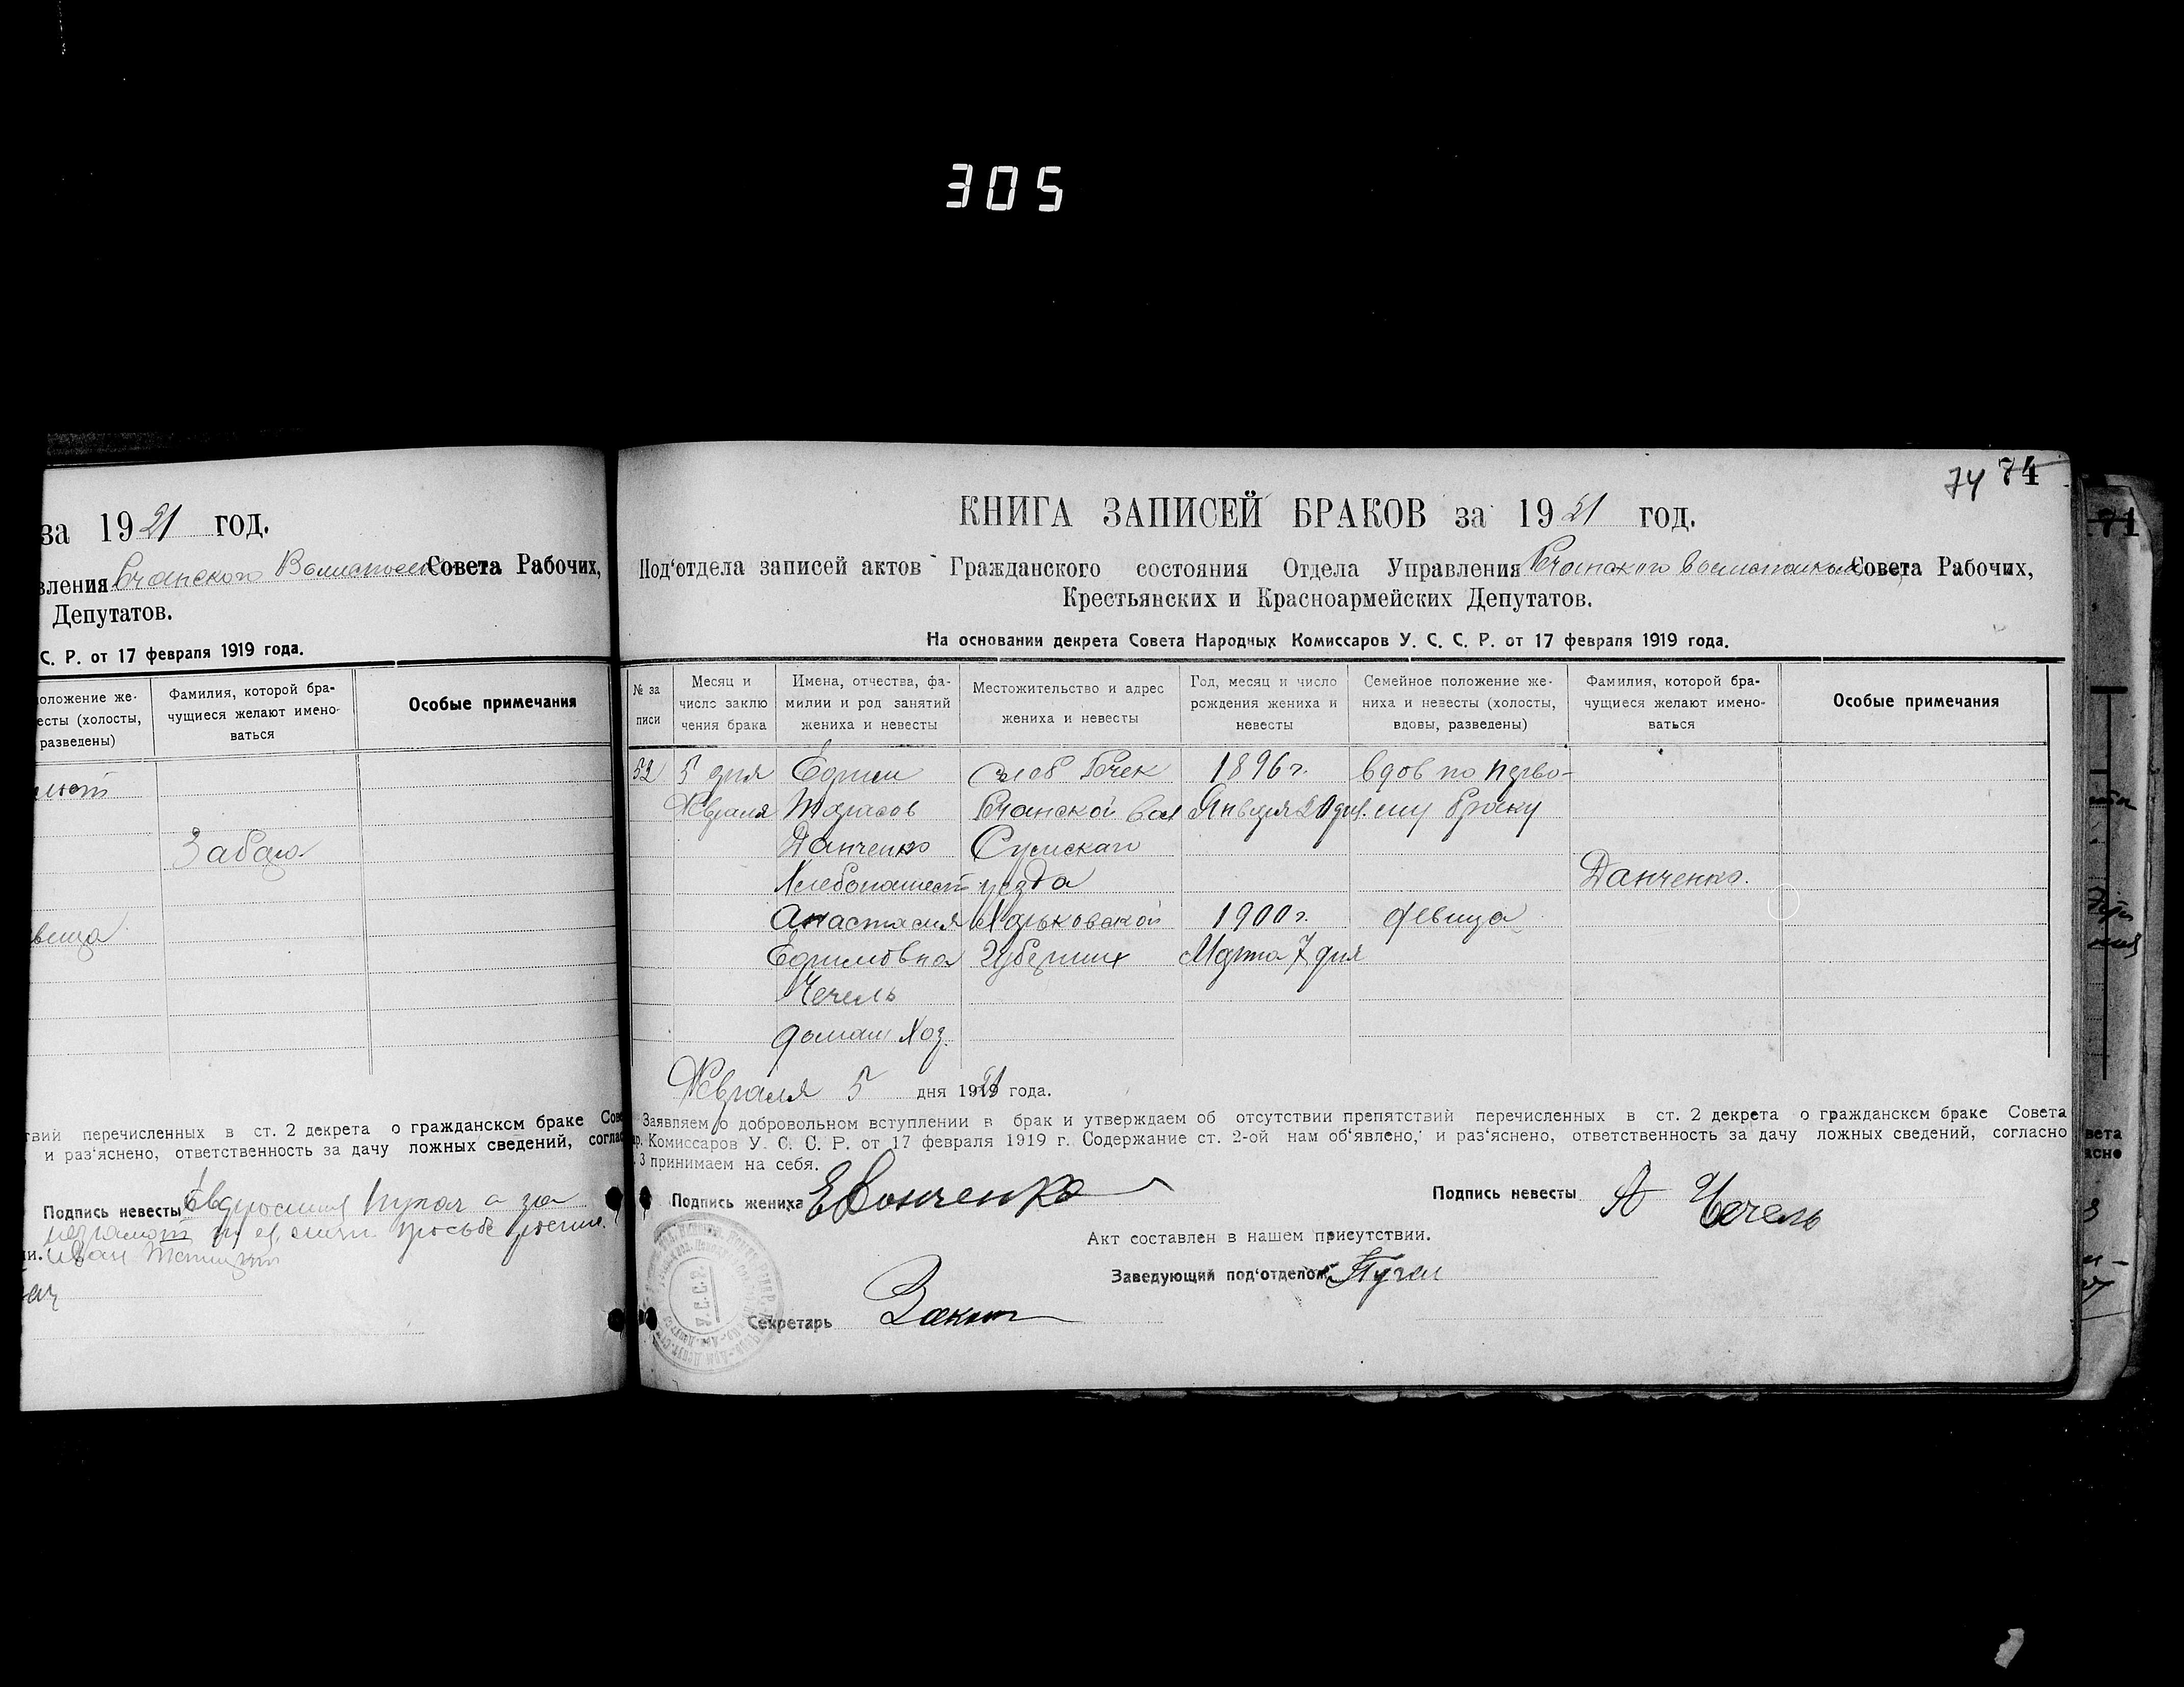 305
за 1921 год.
вления Речанского Совета Рабочих,
Депутатов.
С. Р. от 17 февраля 1919 года.
оложение же-
есты (холосты,
разведены)
Фамилия, которой бра-
чущиеся желают имено-
ваться
Особые примечания
вица
твий перечисленных в ст. 2 декрета о гражданском браке Сове
и раз'яснено, ответственность за дачу ложных сведений, соглас
Подпись невесты
Иван
74 74
КНИГА ЗАПИСЕЙ БРАКОВ за 1921 год.
Под'отдела записей актов Гражданского состояния Отдела Управления Речанского Совета Рабочих,
Крестьянских и Красноармейских Депутатов.
На основании декрета Совета Народных Комиссаров У. С. С. Р. от 17 февраля 1919 года.
№ за
писи
Месяц и
число заклю
чения брака
Имена, отчества, фа-
милии и род занятий
жениха и невесты
Местожительство и адрес
жениха и невесты
Год, месяц и число
рождения жениха и
невесты
Семейное положение же-
ниха и невесты (холосты,
вдовы, разведены)
Фамилия, которой бра-
чущиеся желают имено-
ваться
Особые примечания
52 5 дня Ефим Слоб Речек 1896 г. вдов по перво-
Февраля Тарасов Речанской вол Января 20 дня. му браку
Данченко Сумскаго
Хлебопашест уезда Данченко.
Анастасия Харьковской 1900 г. девица
Ефимовна Губернии Марта 7 дня
Чечель
домаш Хоз.
Февраля 5 дня 1921 года.
Заявляем о добровольном вступлении в брак и утверждаем об отсутствии препятствий перечисленных в ст. 2 декрета о гражданском браке Совета
ар. Комиссаров У. С. С. Р. от 17 февраля 1919 г. Содержание ст. 2-ой нам об'явлено, и раз'яснено, ответственность за дачу ложных сведений, согласно
3 принимаем на себя.
Подпись жениха Подпись невесты А Чечель
Акт составлен в нашем присутствии.
Заведующий под'отделом
Секретарь